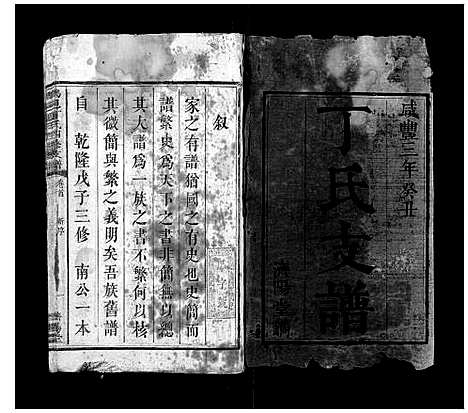 咸豐三年癸丑
丁氏支譜
叙
家之有譜猶國之有史也史簡而
譜繁史爲天下之書非簡無以總
其大譜爲一族之書不繁何以核
其微簡與繁之義明矣吾族舊譜
自　乾隆戊子三修　南公一本
卷首